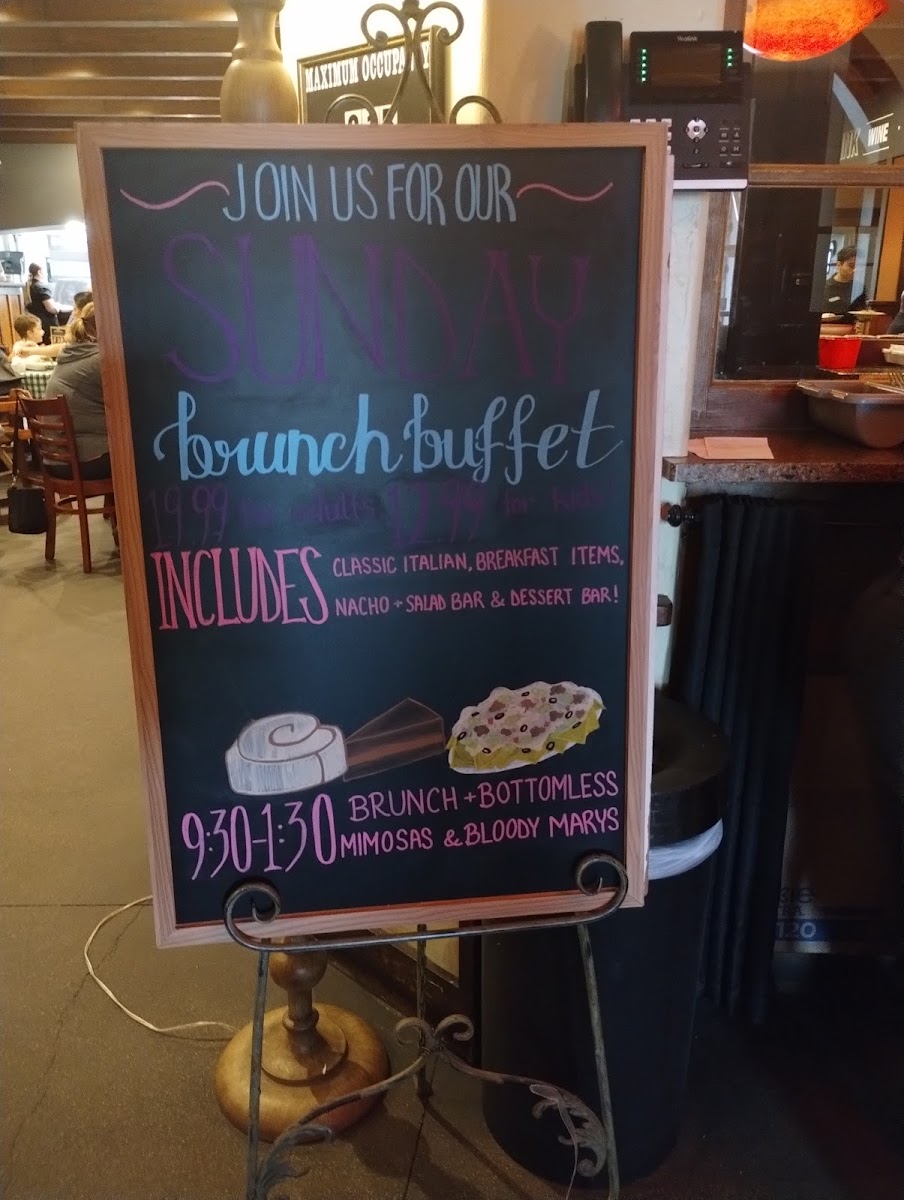 MAXIMUM OCCUPANCY
Yealink
WINE
JOIN US FOR OUR
SUNDAY
brunch buffet
19.99 for adults 12.99 for kids
INCLUDES CLASSIC ITALIAN, BREAKFAST ITEMS,
NACHO + SALAD BAR & DESSERT BAR!
9:30-1:30 BRUNCH + BOTTOMLESS
MIMOSAS & BLOODY MARYS
120